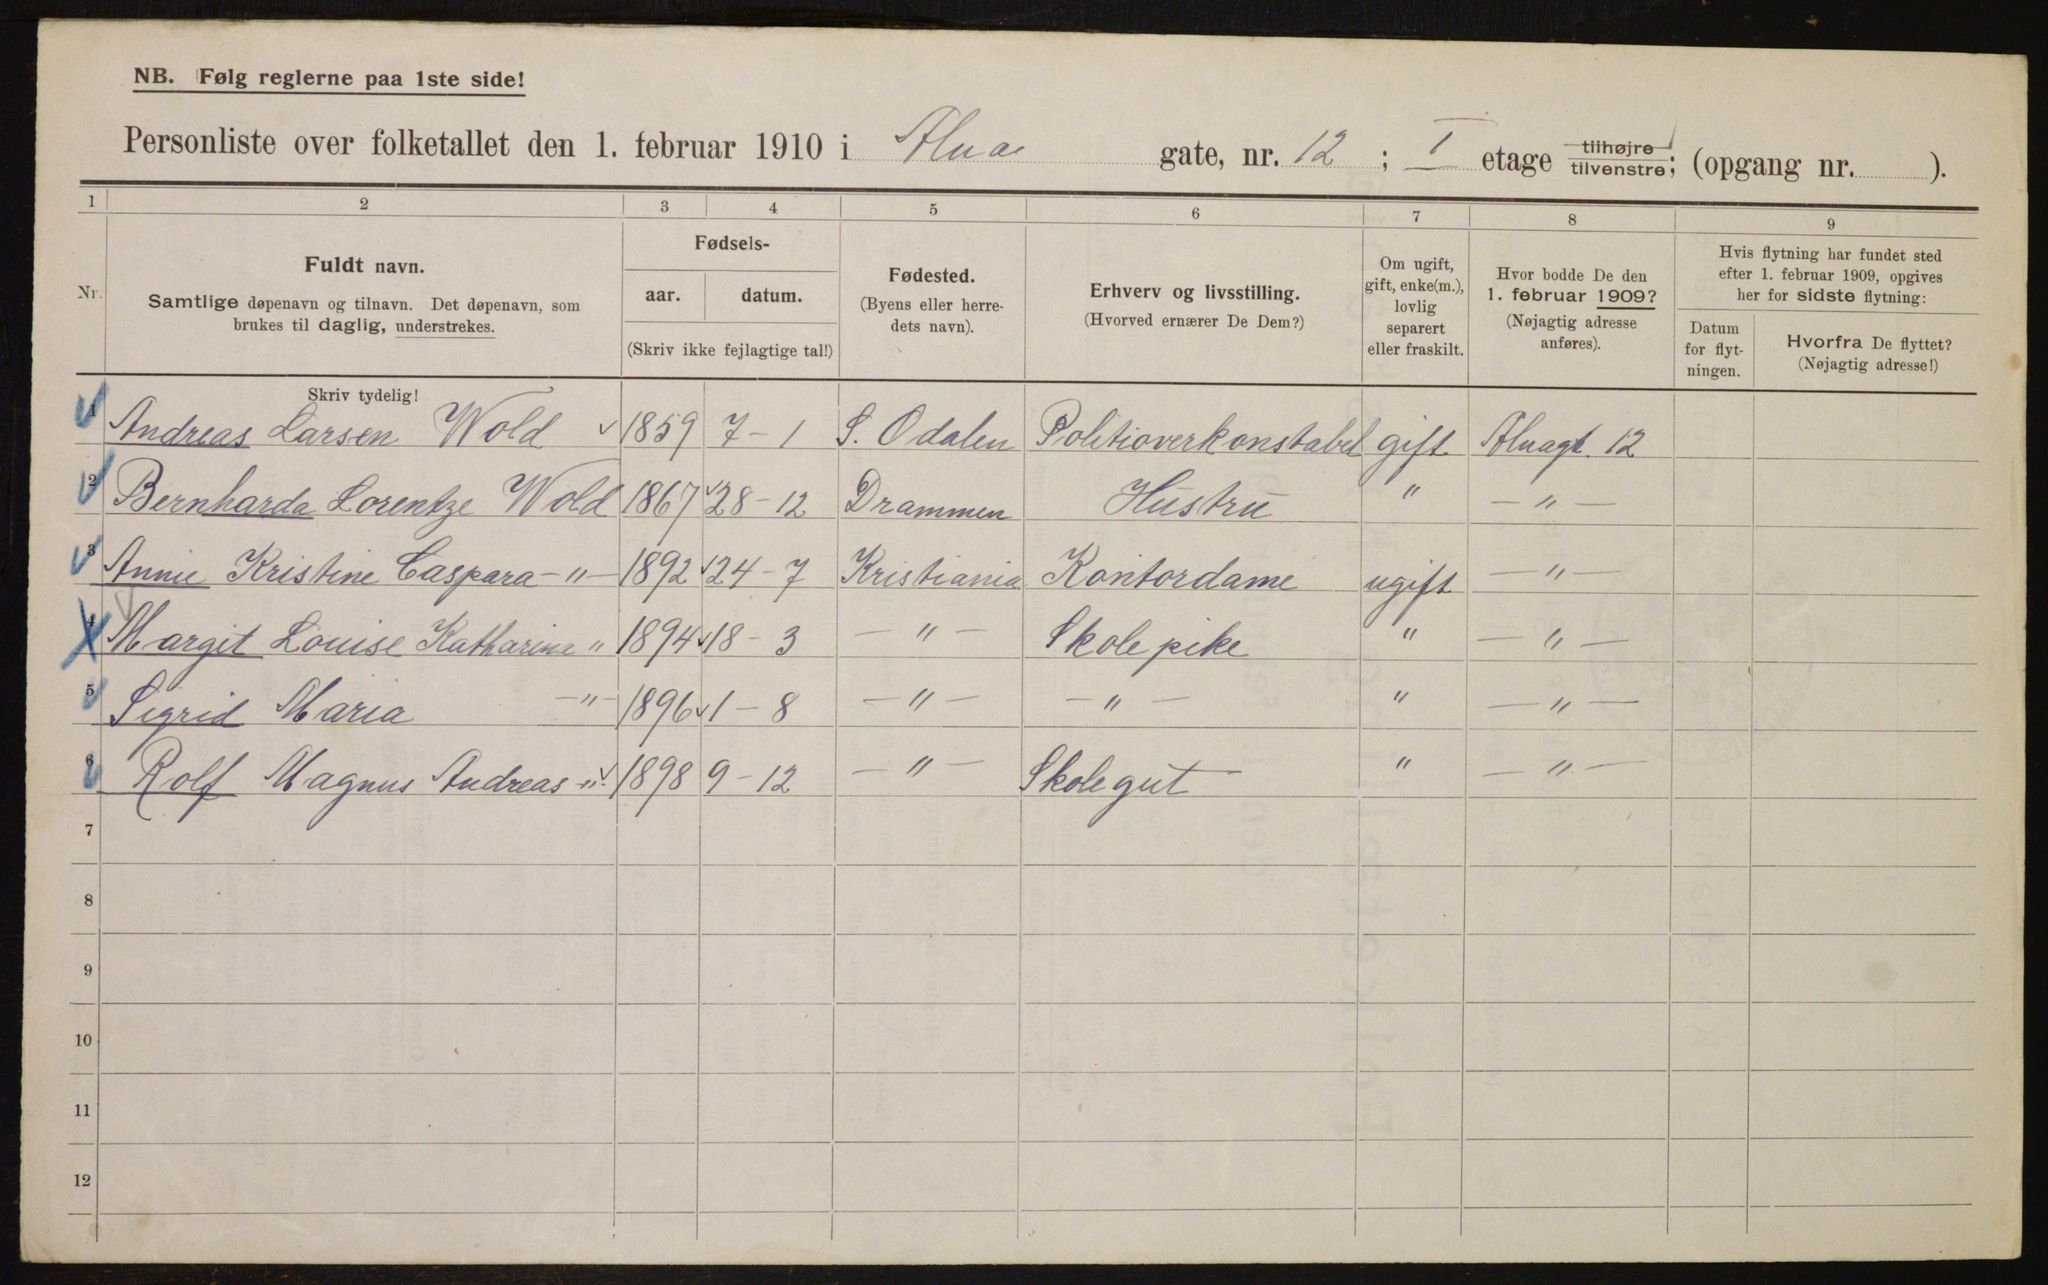 NB. Følg reglerne paa 1ste side!
Personliste over folketallet den 1. februar 1910 i Alna gate, nr. 12 ; I etage tilhøjre tilvenstre; (opgang nr. ).
1 2 3 4 5 6 7 8 9
Nr.
Fuldt navn.
Samtlige døpenavn og tilnavn. Det døpenavn, som
brukes til daglig, understrekes.
Skriv tydelig!
Fødsels-
aar. datum.
(Skriv ikke fejlagtige tal!)
Fødested.
(Byens eller herre-
dets navn).
Erhverv og livsstilling.
(Hvorved ernærer De Dem?)
Om ugift,
gift, enke(m.),
lovlig
separert
eller fraskilt.
Hvor bodde De den
1. februar 1909?
(Nøjagtig adresse
anføres).
Hvis flytning har fundet sted
efter 1. februar 1909, opgives
her for sidste flytning:
Datum
for flyt-
ningen.
Hvorfra De flyttet?
(Nøjagtig adresse!)
1 Andreas Larsen Wold 1859 7-1 S. Odalen Politioverkonstabel gift Alnagt. 12
2 Bernharda Lorentze Wold 1867 28-12 Drammen Hustru " —"—
3 Annie Kristine Caspara —"— 1892 24-7 Kristiania Kontordame ugift —"—
4 Margit Louise Katharine " 1894 18-3 —"— Skolepike " —"—
5 Sigrid Maria —"— 1896 1-8 —"— —"— " —"—
6 Rolf Magnus Andreas —"— 1898 9-12 —"— Skolegut " —"—
7
8
9
10
11
12